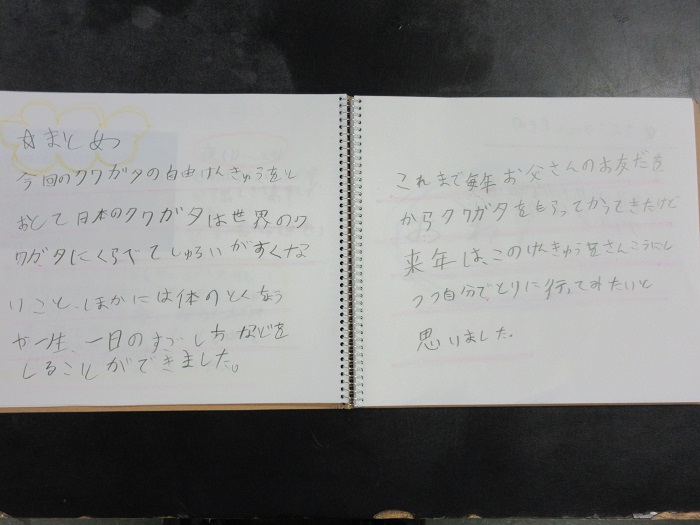 ☆まとめ
今回のクワガタの自由けんきゅうをし
おして日本のクワガタは世界のク
ワガタにくらべてしゅるいがすくな
いこと、ほかには体のとくちょう
や一生、一日のすごし方などを
しることができました。
これまで毎年お父さんのお友だち
からクワガタをもらってかってきたけど
来年は、このけんきゅうをさんこうにし
つつ自分でとりに行ってみたいと
思いました。